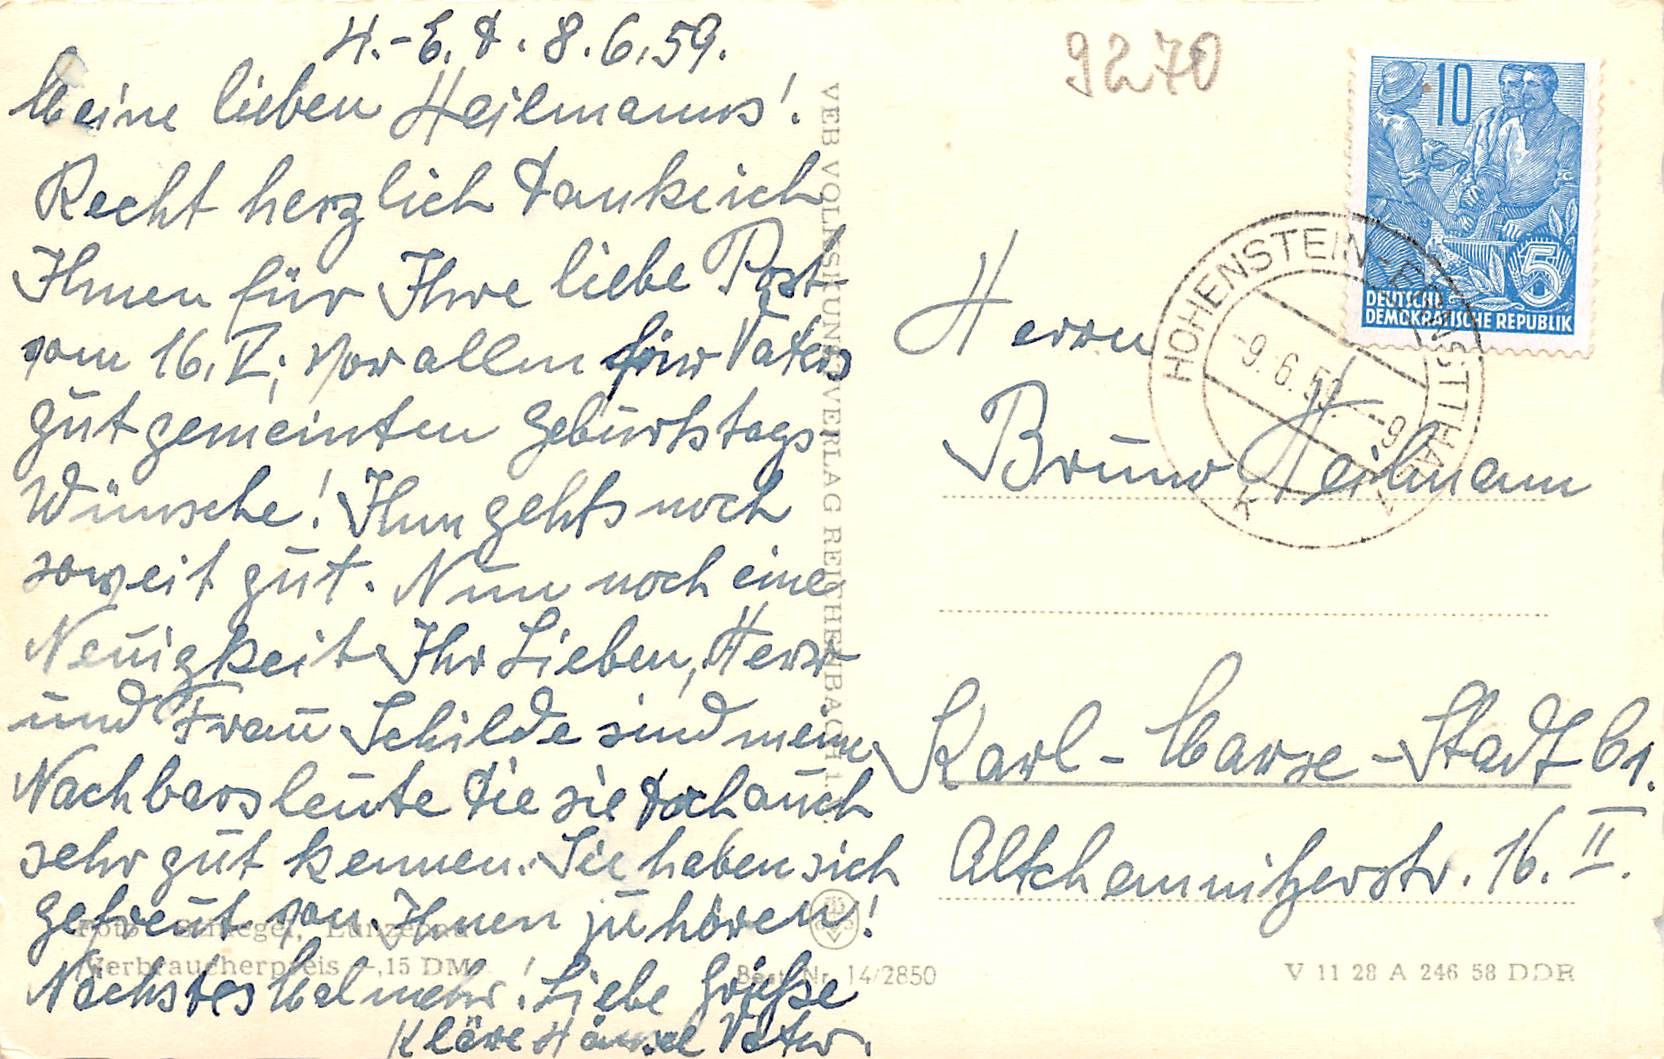 H.-E. d. 8.6.59.
Meine lieben Heilmanns!
Recht herzlich dank ich
Ihnen für Ihre liebe Post
vom 16. V.; vor allem für Vaters
gut gemeinten Geburtstags
Wünsche! Ihm gehts noch
soweit gut. Nun noch eine
Neuigkeit Ihr Lieben, Herr
und Frau Schilde sind meine
Nachbarsleute die sie doch auch
sehr gut kennen. Sie haben sich
gefreut von Ihnen zu hören!
Nächstes Mal mehr! Liebe Grüße
Kläre Hänsel Vater.
Verbraucherpreis -,15 DM
VEB VOLKSKUNSTVERLAG REICHENBACH
Best. Nr. 14/2850
9270
10
5
DEUTSCHE
DEMOKRATISCHE REPUBLIK
HOHENSTEIN-ERNSTTHAL
-9.6.59.-9
Herrn
Bruno Heilmann
Karl-Marx-Stadt
Altchemnitzerstr. 16. II.
V 11 28 A 246 58 DDR